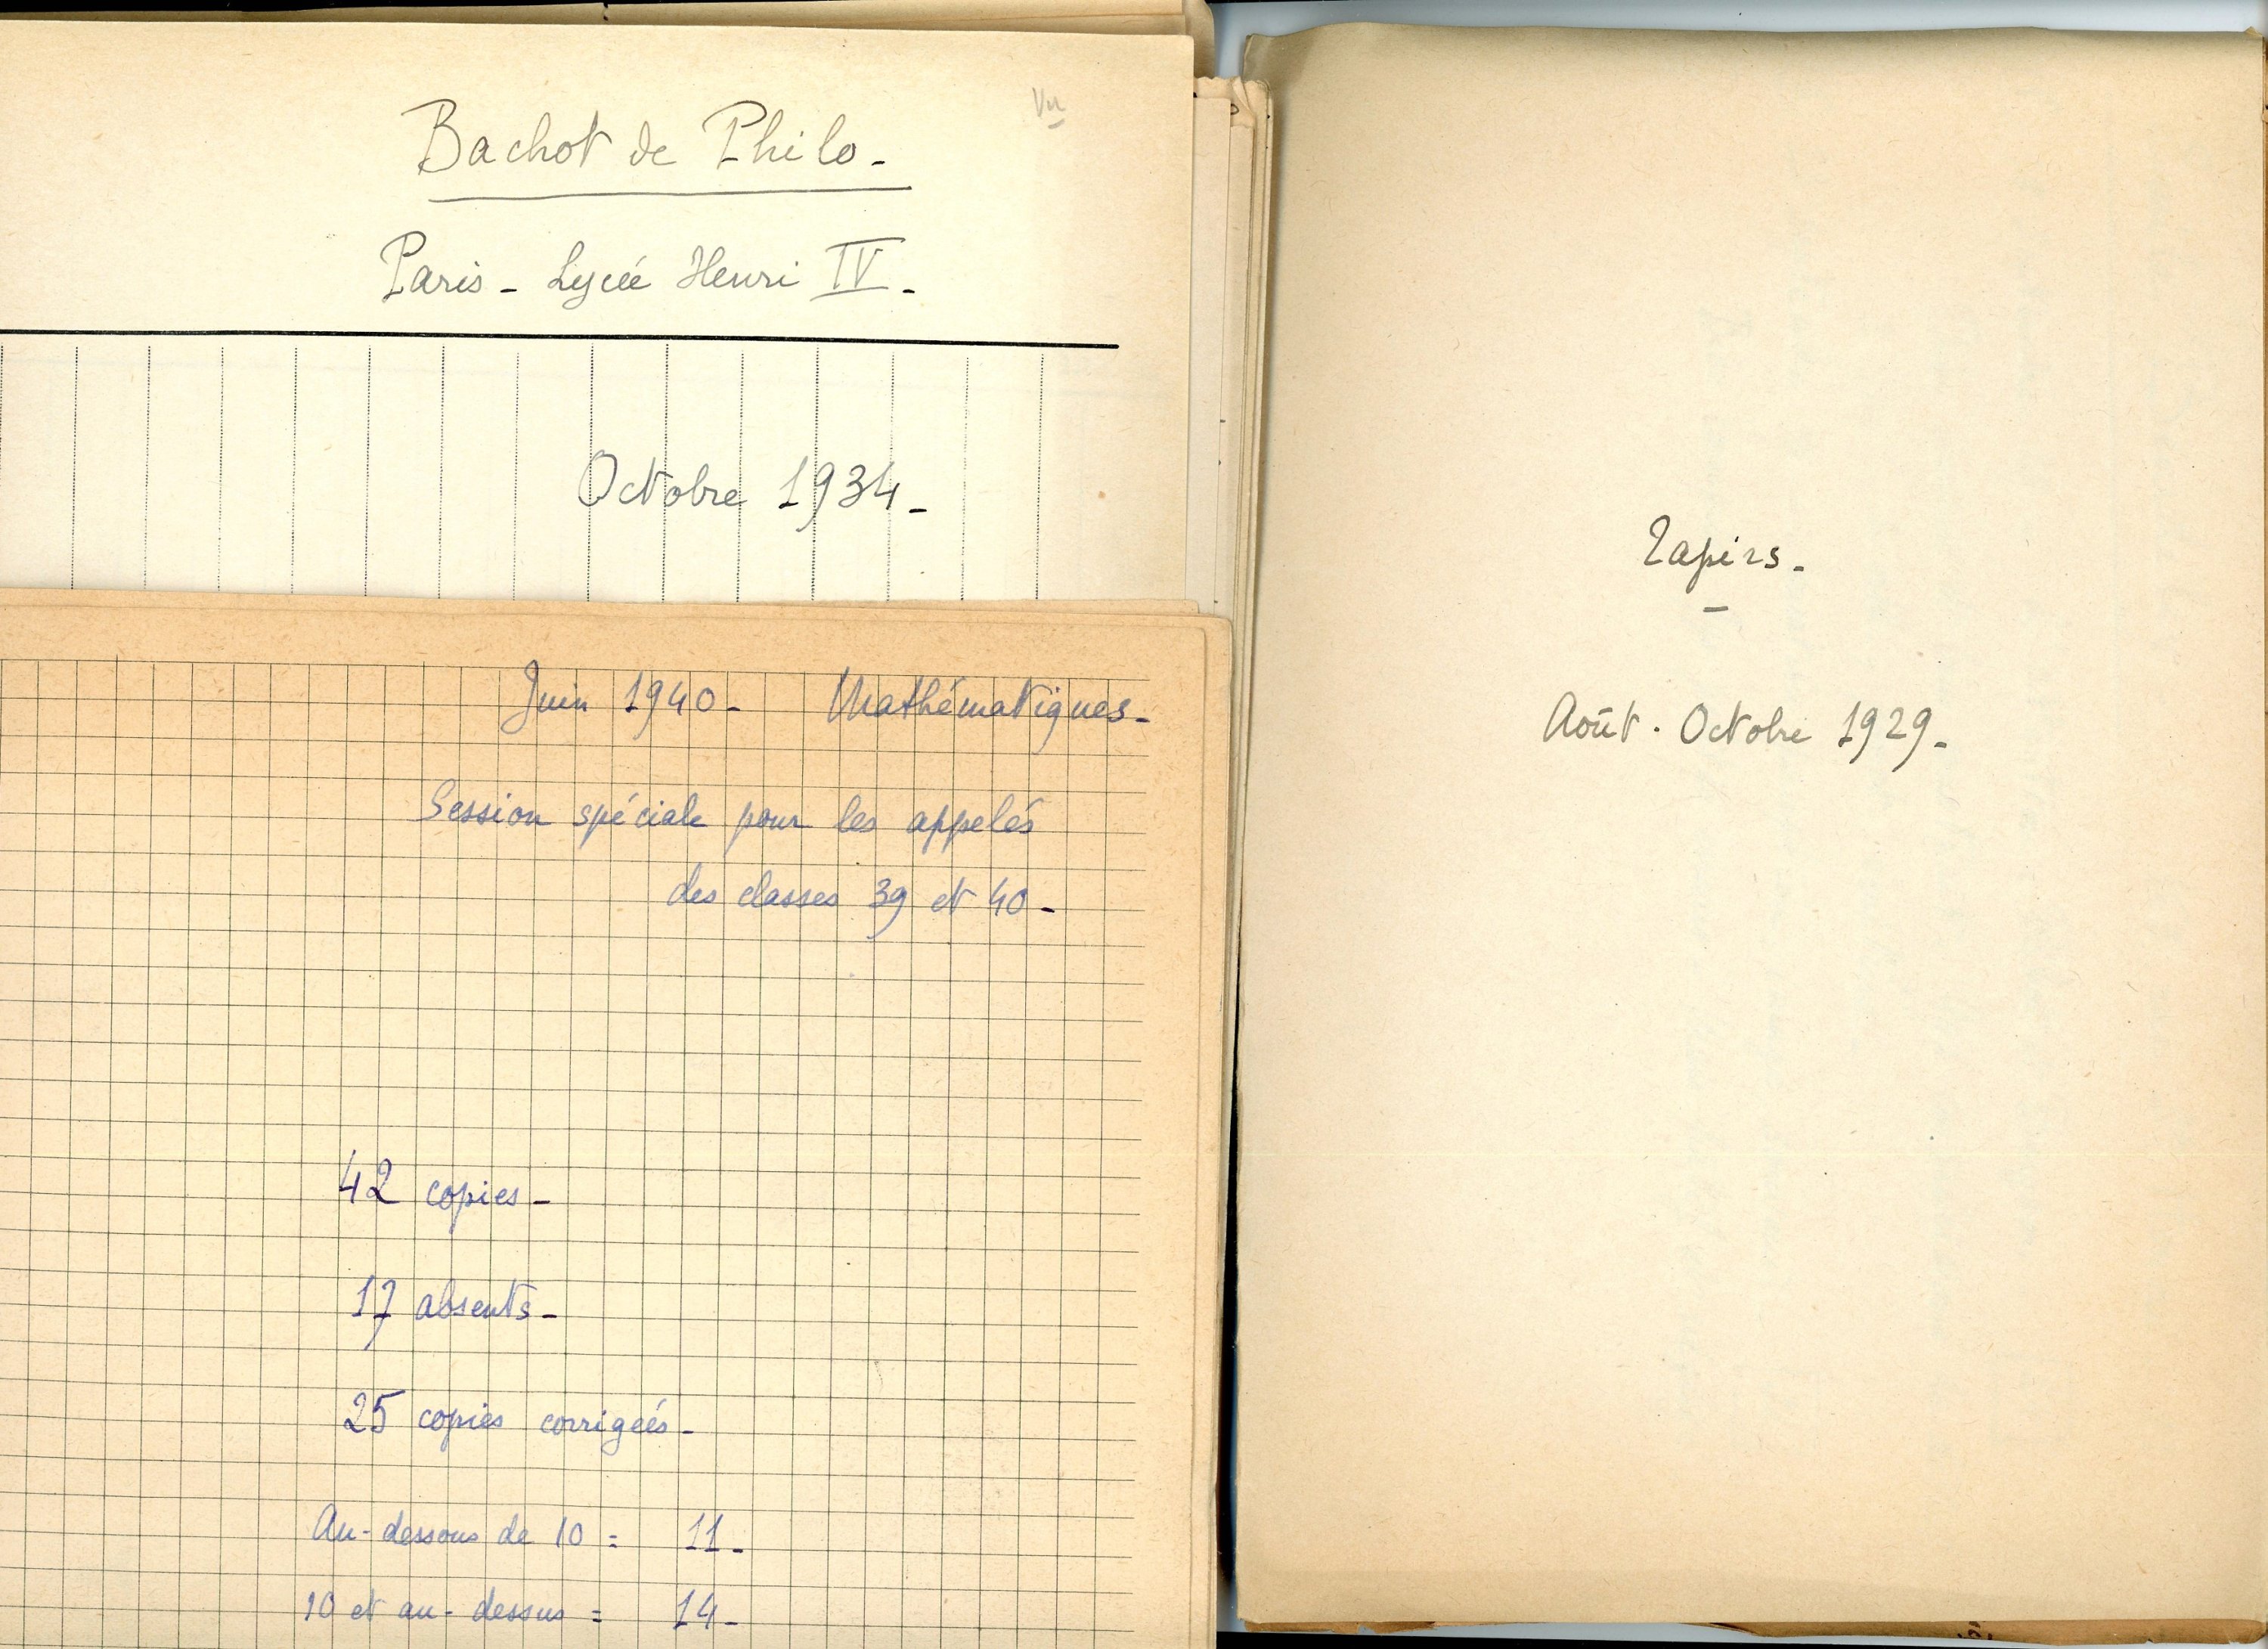 Vu
Bachot de Philo-
Paris - Lycée Henri IV-
Octobre 1934-
Juin 1940- Mathématiques-
Session spéciale pour les appelés
des classes 39 et 40-
42 copies-
17 absents-
25 copies corrigées-
Au-dessous de 10 = 11-
10 et au-dessus = 14-
Tapirs-
Août. Octobre 1929-